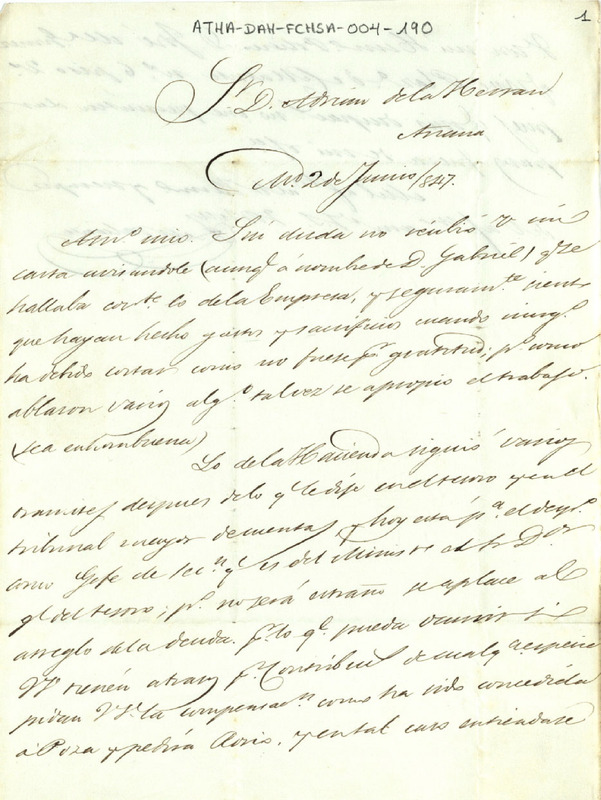 ATHA-DAH-FCHSA-004-190
1
Sr. D. Adrian de la Herran
Anana
Md. 2 de Junio/847.
Amo. mio. Sin duda no recibió V mi
carta avisandole (aunq. á nombre de D. Gabriel) q. se
hallaba corte. lo de la Empresa, y seguramte. siento
que hayan hecho gastos y sacrificios cuando ning.o
ha debido costar como no fuese pr. gratitud; po. como
ablaron varios alg.o tal vez se apropió el trabajo.
(sea enhorabuena)
Lo de la Hacienda siguió varios
tramites despues de lo q. le dije en el tesoro y en el
tribunal mayor de cuentas, y hoy está pa. el
como Gefe de secn. q. es del Ministo. el Sr. Dor.
gl. del tesoro; po. no será estraño se aplace al
arreglo de la deuda. pr. lo q. pueda si
Vs. tienen atrasos pr. Contribucs. de cualqa. especie
pidan Vs. la compensacn. como ha sido concedida
á Poza y pedirá y en tal caso entiendase